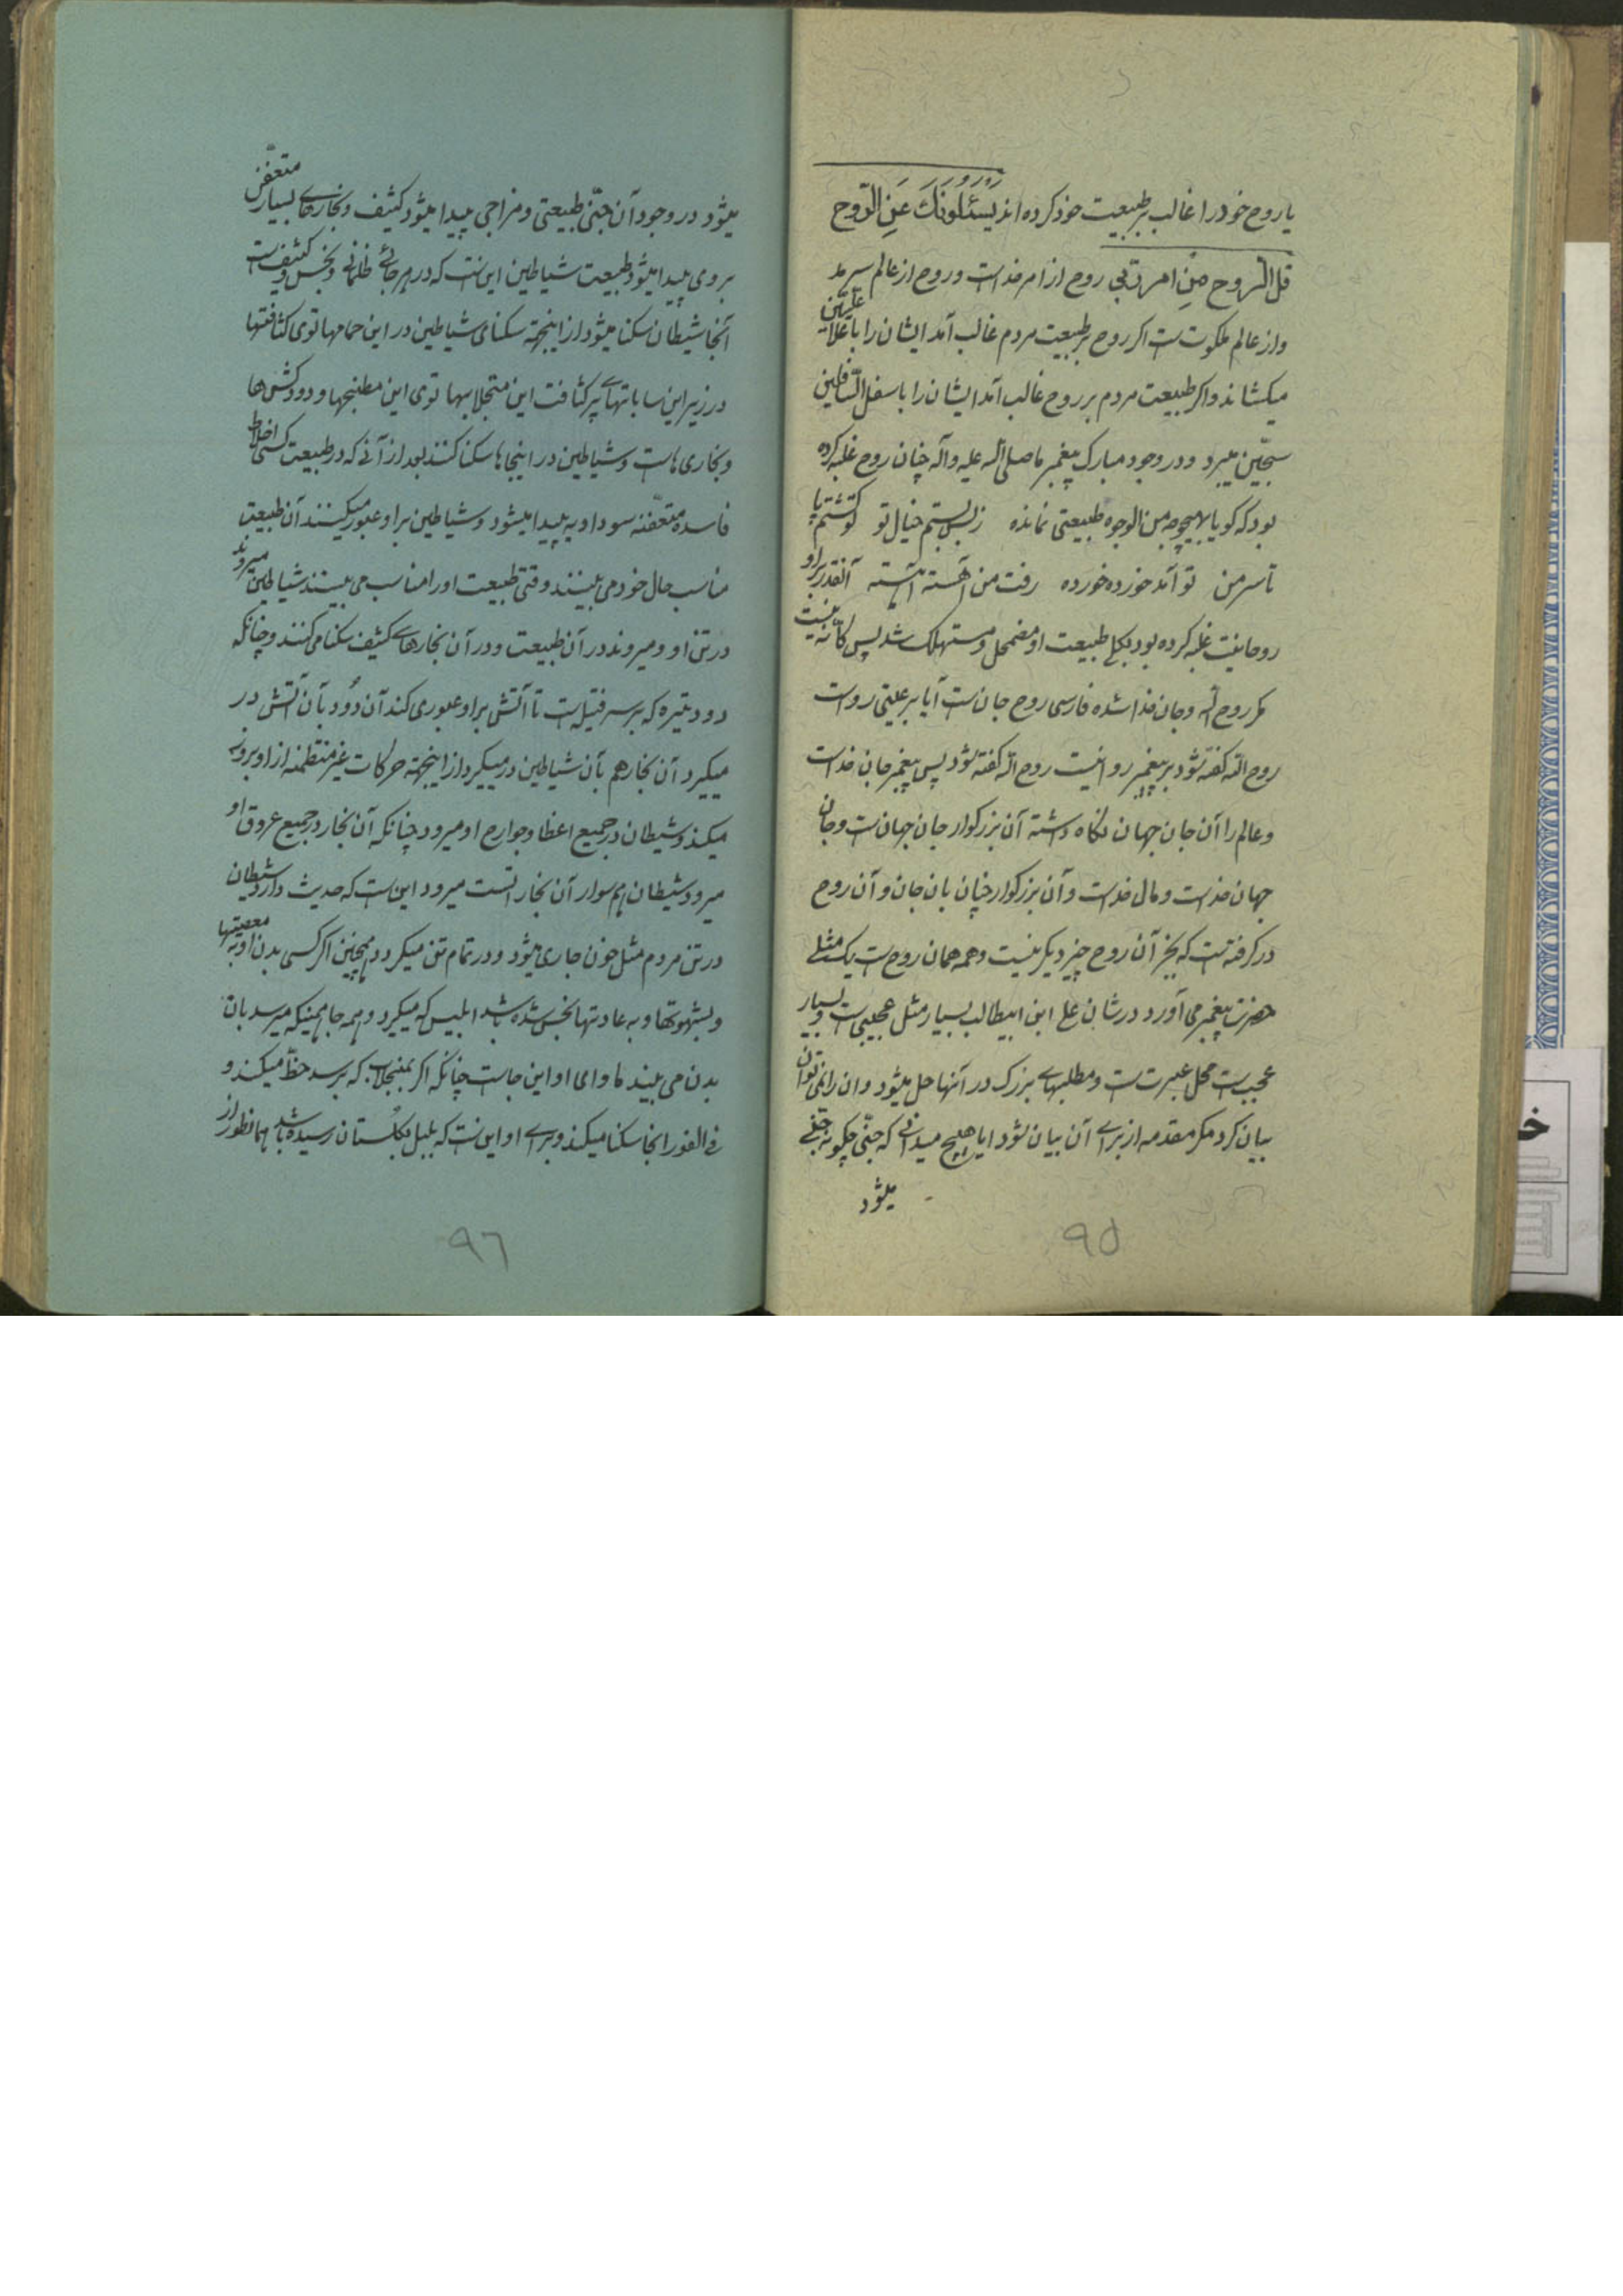 یا روح خود را غالب بر طبیعت خود کرده‌اند یسئلونک عَنِ الرّوح
قل الروح مِنِ امر ربّی روح از امر خداست و روح از عالم سرمد
و از عالم ملکوت ست اکر روح بر طبیعت مردم غالب آمد ایشان را باعلا علیّین
میکشاند و اکر طبیعت مردم بر روح غالب آمد ایشان را باسفل السّافلین
سجّین میبرد و در وجود مبارک پیغمبر ما صلی الله علیه و آله چنان روح غلبه کرده
بود که کویا بهیچوجه من الوجوه طبیعتی نمانده ز بس بستم خیال تو تو کشتم پای
تا سر من تو آمد خورده خورده رفت من آهسته آهسته آنقدر بر او
روحانیت غلبه کرده بود بکلی طبیعت او مضمحل و مستهلک شد پس کانّه نیست
مکر روح الله و جان خدا شده فارسی روح جان ست آیا بر عیسی رواست
روح الله کفته شود بر پیغمبر روا نیست روح الله کفته شود پس پیغمبر جان خداست
و عالم را آن جان جهان نکاه داشته آن بزرکوار جان جهان ست و جان
جهان خداست و مال خداست و آن بزرکوار چنان بان جان و آن روح
در کرفته است که بجز آن روح چیز دیکر نیست و همه همان روح ست یک مثلی
حضرت پیغمبر می آورد در شان علی ابن ابیطالب بسیار مثل عجیبی است و بسیار
عجیب ست محل عبرت ست و مطلبهای بزرک در آنها حل میشود و ان را نمی توان
بیان کرد مکر مقدمه از برای آن بیان شود ایا هیچ میدانی که جنّی چکونه جنّی
میشود
۹۵
میشود در وجود آن جنّی طبیعتی و مزاجی پیدا میشود کثیف و بخارهای بسیار متعفّن
بر وی پیدا میشود و طبیعت شیاطین این ست که در هر جائی ظلمانی و نجس و کثیف است
آنجا شیطان سکنا میشود از اینجهة سکنای شیاطین در این حمامها توی کثافتها
در زیر این ساباتهای پر کثافت این منجلابها توی این مطبخها و دودکش ها
و بخاری هاست و شیاطین در اینجاها سکنا کنند بعد از آنی که در طبیعت کسی اخلاط
فاسده متعفّنه سوداویه پیدا میشود و شیاطین بر او عبور میکنند آن طبیعت
مناسب حال خود می بینند وقتی طبیعت او را مناسب می بینند شیاطین میروند
در تن او و میروند در آن طبیعت و در آن بخارهای کثیف سکنا می کنند و چنانکه
دود تیره که بر سر فتیله ست تا آتش بر او عبوری کند آن دود بآن آتش در
میکیرد آن بخار هم بآن شیاطین در میکیرد از اینجهة حرکات غیر منتظمه از او بروز
میکند و شیطان در جمیع اعضا و جوارح او میرود چنانکه آن بخار در جمیع عروق او
میرود شیطان هم سوار آن بخار است میرود این ست که حدیث وارد شیطان
در تن مردم مثل خون جاری میشود و در تمام تن میکردد همچنین اکر کسی بدن او به معصیتها
و بشهوتها و به عادتها نجس شده باشد ابلیس که میکردد و همه جا همینکه میرسد بان
بدن می بیند ماوای او این جاست چنانکه اکر بمنجلاب که برسد حظّ میکند و
فی الفور انجا سکنا میکند و برای او این ست که بلبل بکلستان رسیده باشد همانطور از
۹۶
خ